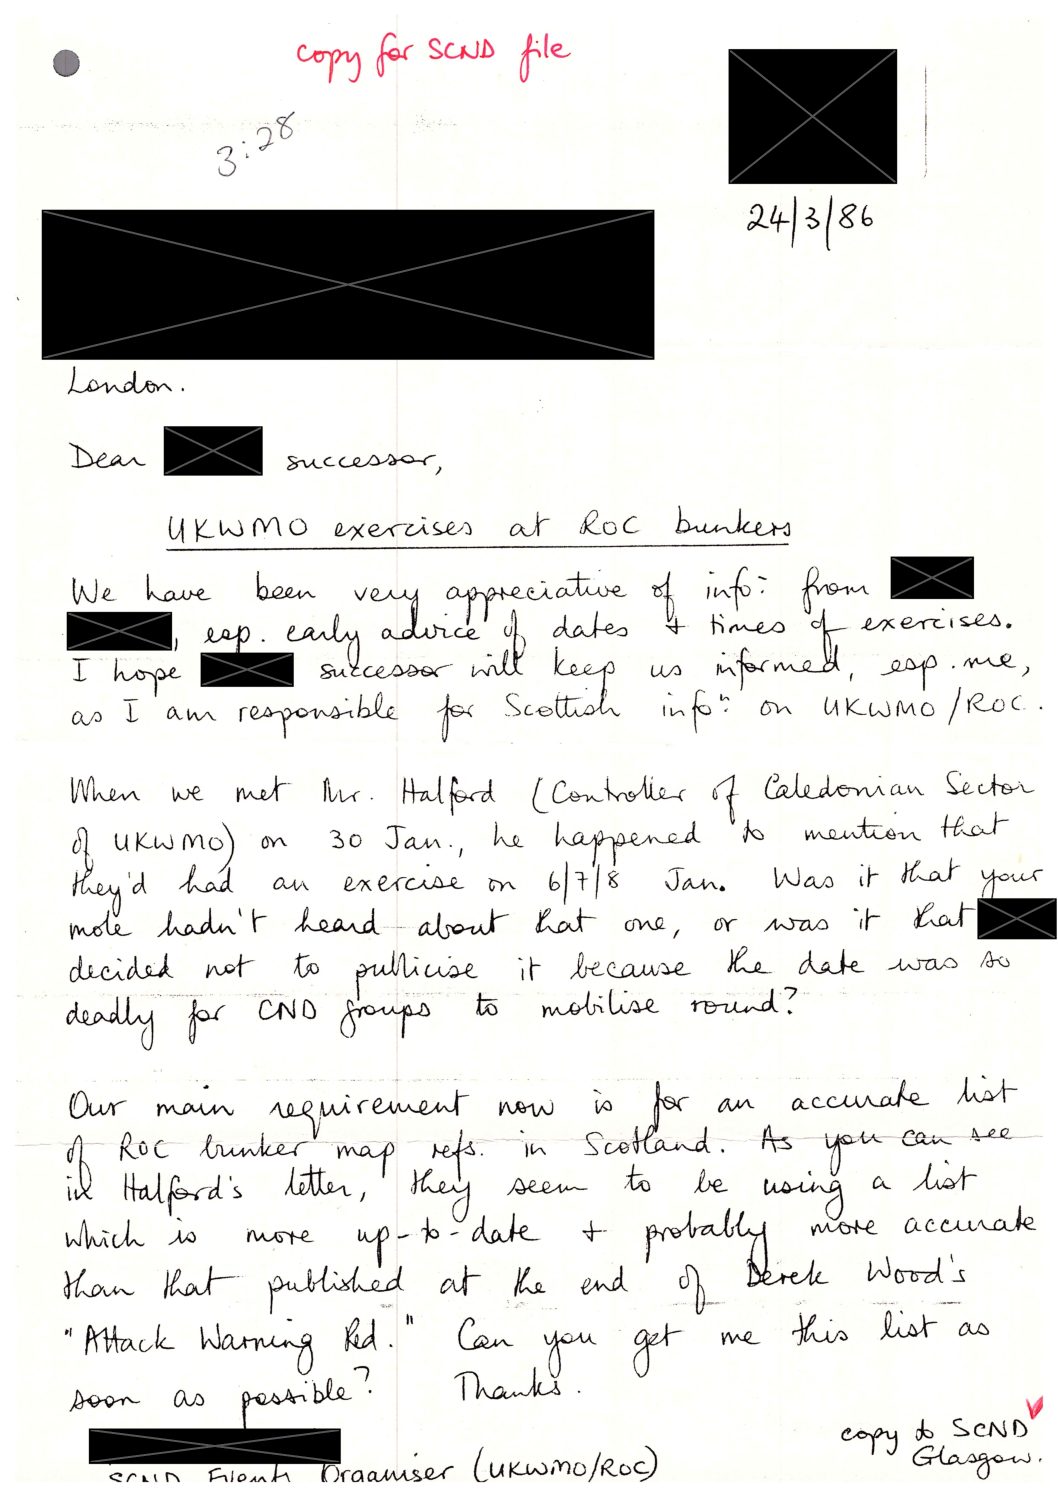 copy for SCND file
3:28
24/3/86
London.
Dear successor,
UKWMO exercises at ROC bunkers
We have been very appreciative of info: from
, esp. early advice of dates + times of exercises.
I hope successor will keep us informed, esp. me,
as I am responsible for Scottish info: on UKWMO/ROC.
When we met Mr. Halford (Controller of Caledonian Sector
of UKWMO) on 30 Jan., he happened to mention that
they'd had an exercise on 6/7/8 Jan. Was it that your
mole hadn't heard about that one, or was it that
decided not to publicise it because the date was so
deadly for CND groups to mobilise round?
Our main requirement now is for an accurate list
of ROC bunker map refs. in Scotland. As you can see
in Halford's letter, they seem to be using a list
which is more up-to-date + probably more accurate
than that published at the end of Derek Wood's
"Attack Warning Red." Can you get me this list as
soon as possible? Thanks.
SCND Events Organiser (UKWMO/ROC)
copy to SCND
Glasgow.